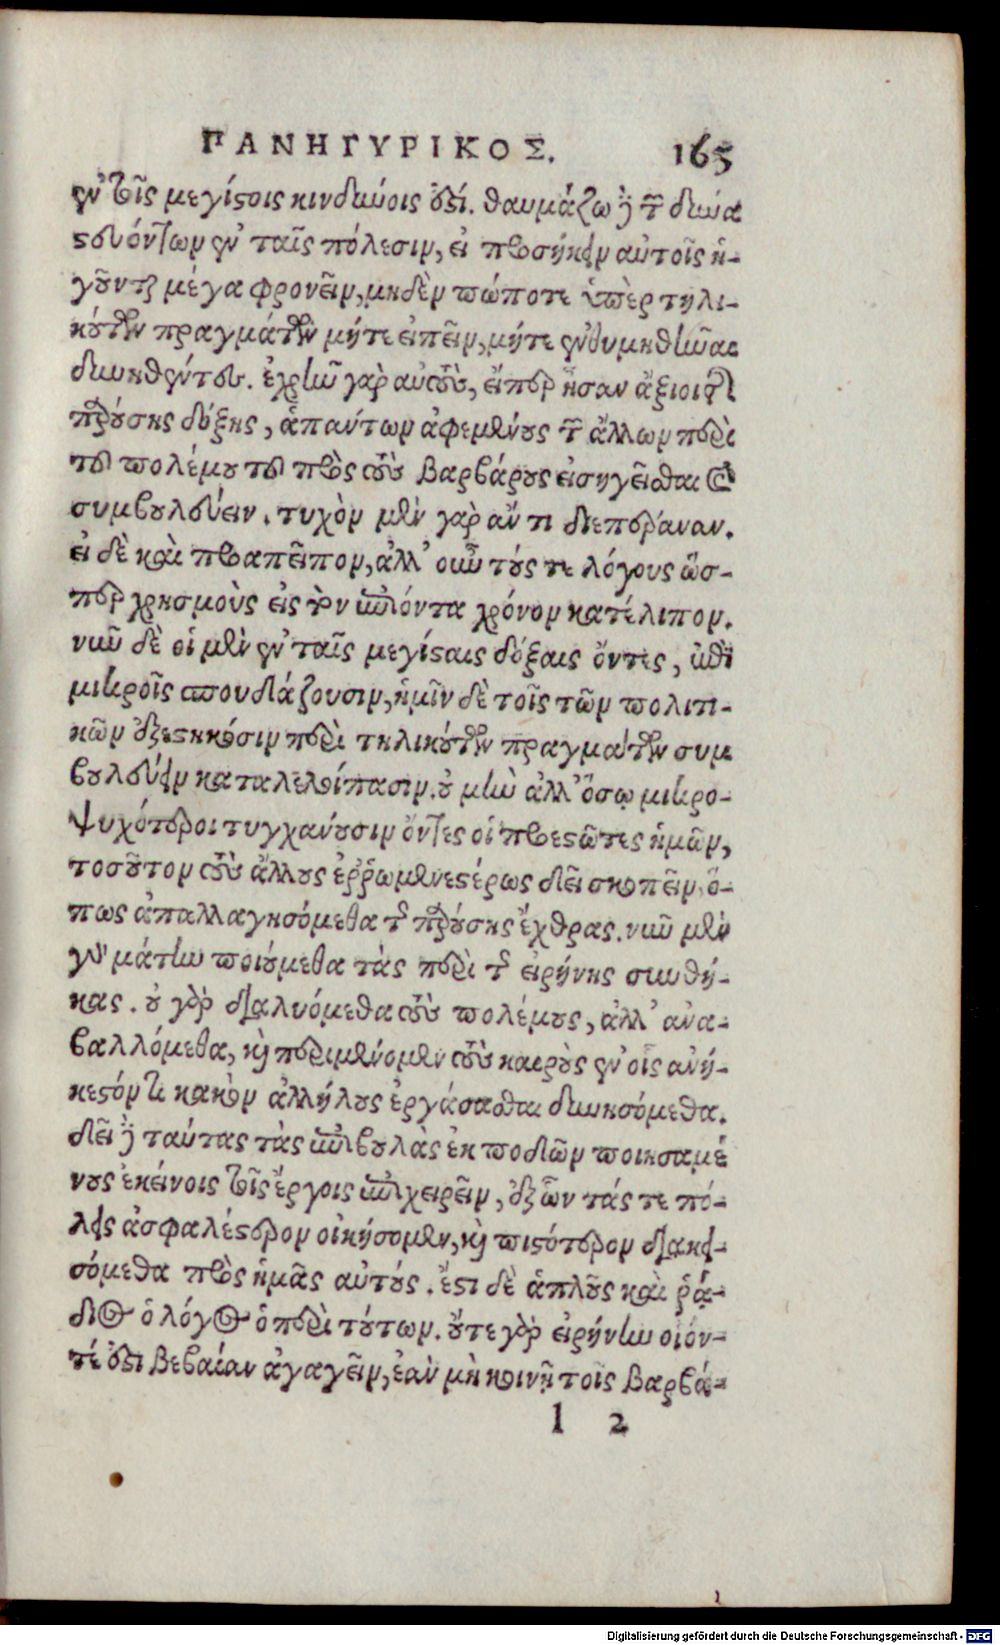 ΠΑΝΗΓΥΡΙΚΟΣ. 165
ἐν τοῖς μεγίστοις κινδύνοις ἐστί. θαυμάζω δὲ τῶν δυνα
στευόντων ἐν ταῖς πόλεσιν, εἰ προσήκειν αὐτοῖς ἡ-
γοῦνται μέγα φρονεῖν, μηδὲν πώποτε ὑπὲρ τηλι-
κούτων πραγμάτων μήτε εἰπεῖν, μήτε ἐνθυμηθῆναι
δυνηθέντες. ἐχρῆν γὰρ αὐτοὺς, εἴπερ ἦσαν ἄξιοι τῆς
παρούσης δόξης, ἁπάντων ἀφεμένους τῶν ἄλλων περὶ
τοῦ πολέμου τοῦ πρὸς τοὺς βαρβάρους εἰσηγεῖσθαι καὶ
συμβουλεύειν. τυχὸν μὲν γὰρ ἄν τι διεπέραναν.
εἰ δὲ καὶ προαπεῖπον, ἀλλ' οὖν τούς τε λόγους ὥσ-
περ χρησμοὺς εἰς τὸν ἐπιόντα χρόνον κατέλιπον.
νῦν δὲ οἱ μὲν ἐν ταῖς μεγίσταις δόξαις ὄντες, ἐπὶ
μικροῖς σπουδάζουσιν, ἡμῖν δὲ τοῖς τῶν πολιτι-
κῶν ἐξεστηκόσιν περὶ τηλικούτων πραγμάτων συμ
βουλεύειν καταλελοίπασιν. οὐ μὴν ἀλλ' ὅσῳ μικρο-
ψυχότεροι τυγχάνουσιν ὄντες οἱ προεστῶτες ἡμῶν,
τοσοῦτον τοὺς ἄλλους ἐῤῥωμενεστέρως δεῖ σκοπεῖν, ὅ-
πως ἀπαλλαγησόμεθα τῆς παρούσης ἔχθρας. νῦν μὲν
γὰρ μάτην ποιούμεθα τὰς περὶ τῆς εἰρήνης συνθή-
κας. οὐ γὰρ διαλυόμεθα τοὺς πολέμους, ἀλλ' ἀνα-
βαλλόμεθα, καὶ περιμένομεν τοὺς καιρὸὺς ἐν οἷς ἀνή-
κεστόν τι κακὸν ἀλλήλους ἐργάσασθαι δυνησόμεθα.
δεῖ δὲ ταύτας τὰς ἐπιβουλὰς ἐκ ποδῶν ποιησαμέ
νους ἐκείνοις τοῖς ἔργοις ἐπιχειρεῖν, ἐξ ὧν τάς τε πό-
λεις ἀσφαλέστερον οἰκήσομεν, καὶ πιστότερον διακει-
σόμεθα πρὸς ἡμᾶς αὐτούς. ἔστι δὲ ἁπλοῦς καὶ ῥᾴ-
διος ὁ λόγος ὁ περὶ τούτων. οὔτε γὰρ εἰρήνην οἷόν-
τέ ἐστι βεβαίαν ἀγαγεῖν, ἐὰν μὴ κοινῇ τοῖς βαρβά-
l 2
Digitalisierung gefördert durch die Deutsche Forschungsgemeinschaft - DFG